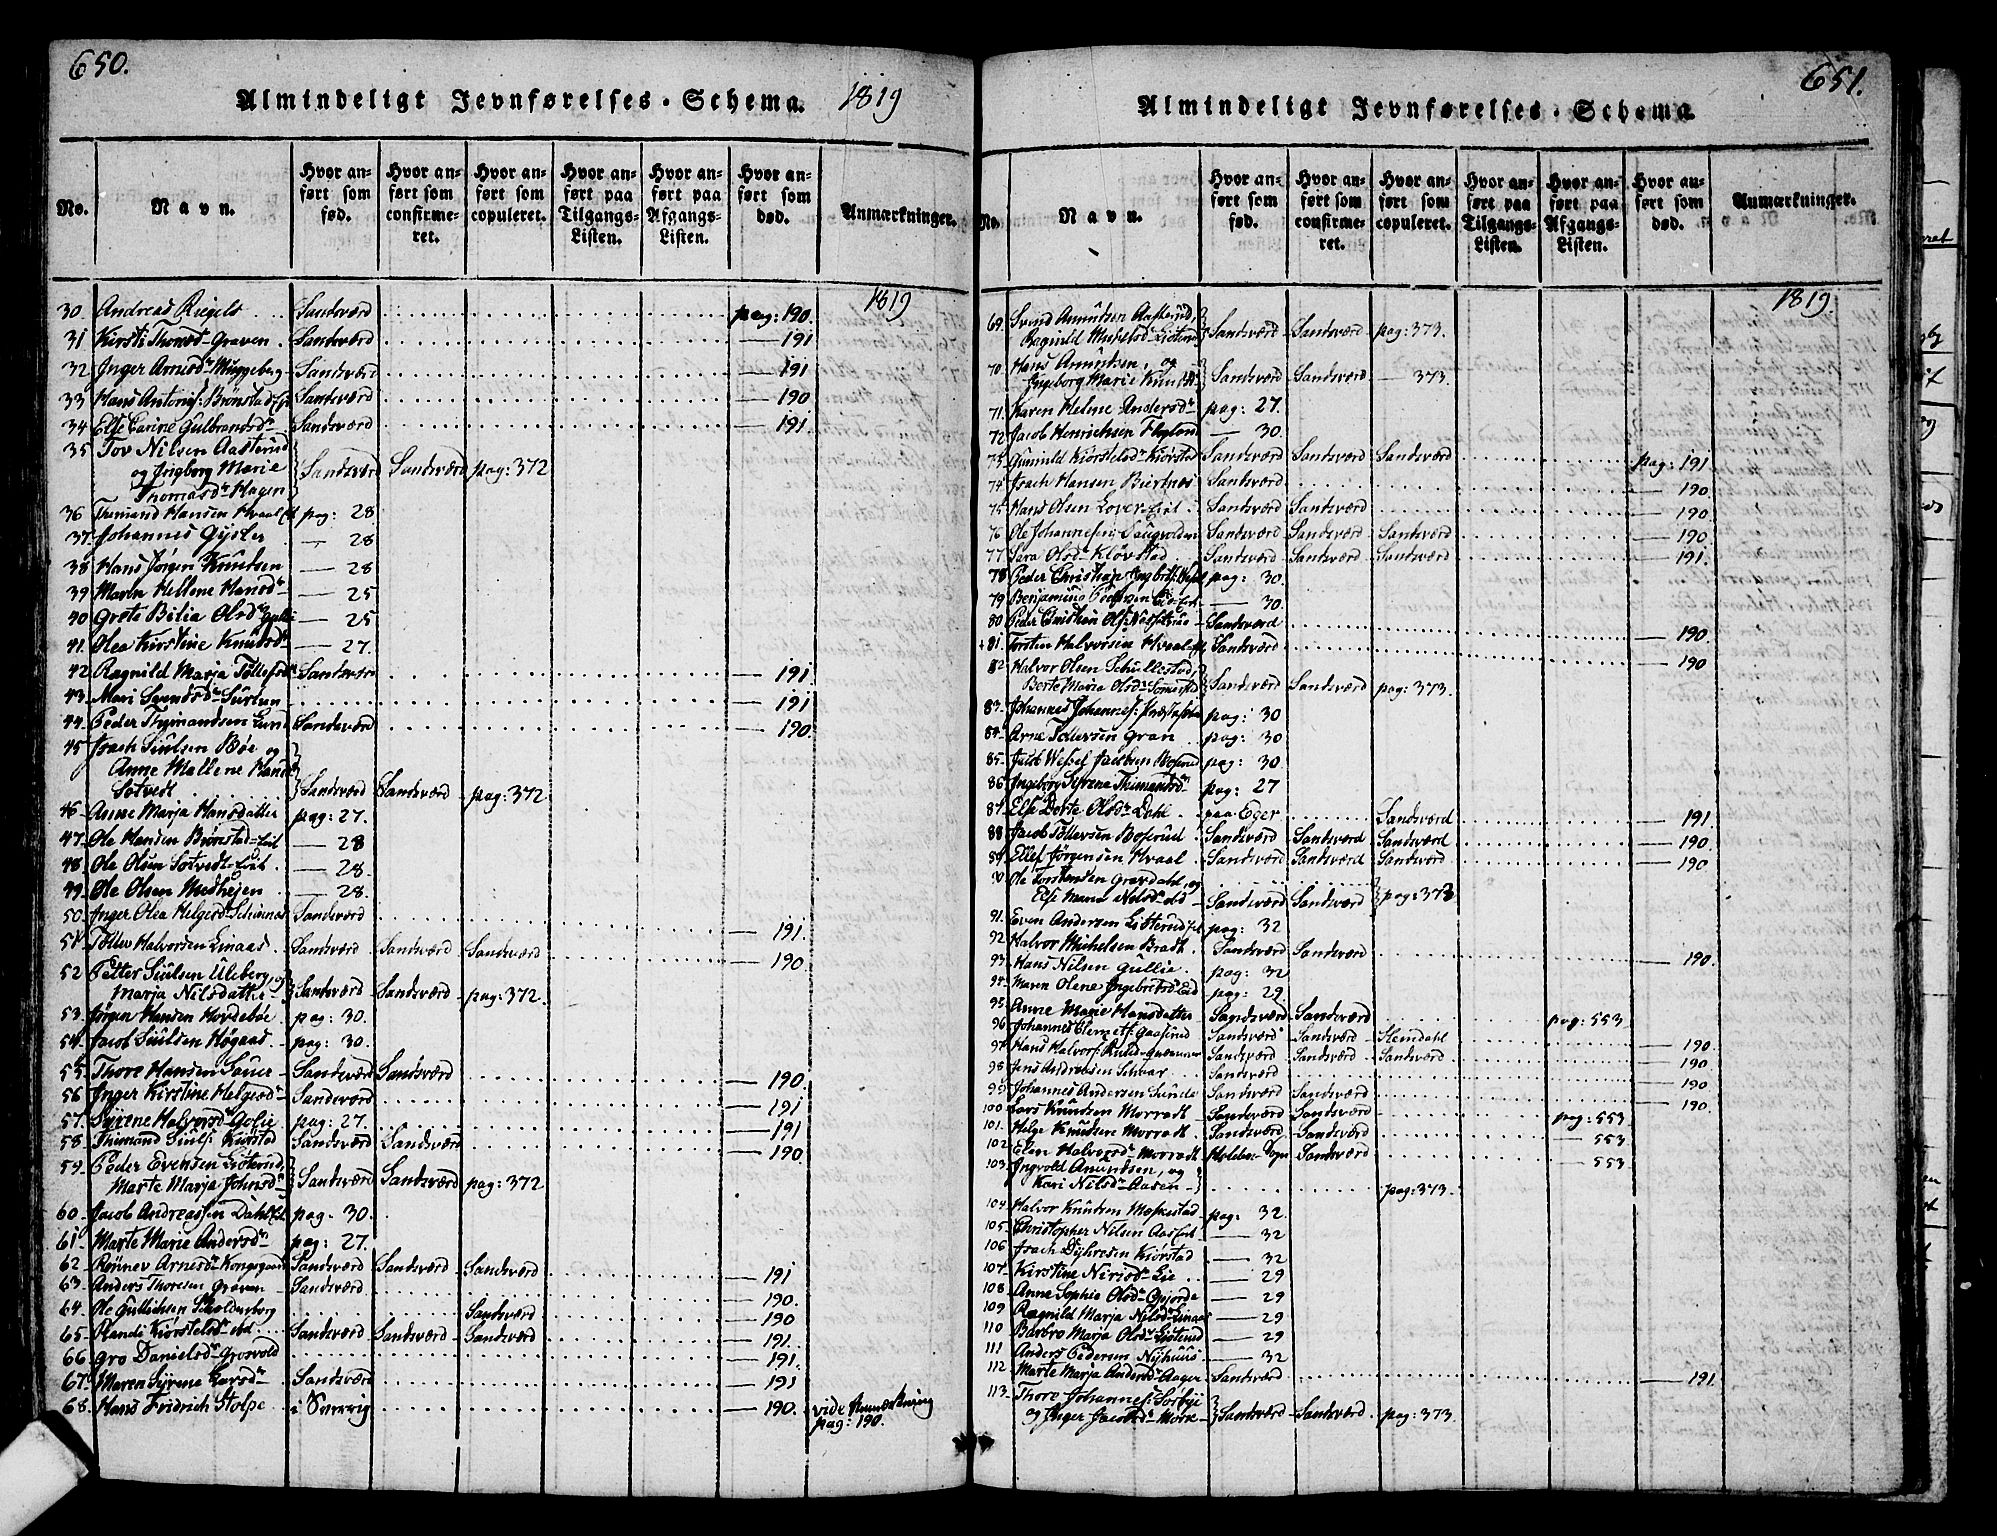 650.
Almindeligt Jevnførelses-Schema. 1819
No.
Navn.
Hvor anført som fød.
Hvor anført som confirmeret.
Hvor anført som copuleret.
Hvor anført paa Tilgangs-Listen.
Hvor anført paa Afgangs-Listen.
Hvor anført som død.
Anmærkninger.
1819
30. Andreas Riegels Sandsværd pag: 190.
31 Kirsti Thorsd. Graven Sandsværd — 191
32 Inger Arnesdr Muggeberg Sandsværd — 191
33 Hans Antonis: Brønstad Sandsværd — 190
34 Else Carine Gulbrandsdr Sandsværd — 191.
35 Tov Nilsen Aasterud
og Ingborg Marie Sandsværd Sandsværd pag: 372
Thomasdr Hagen
36 Trimand Hansen Hvaal pag: 28
37. Johannes Gjsler — 28
38 Hans Jørgen Knudsen — 28
39 Maren Hellene Hansdr — 25
40 Grete Bilia Olsdr — 25
41. Olea Kirstine Knudsdr — 27.
42 Ragnild Marja Tollefsdr Sandsværd — 191.
43. Mari — 191
44. Peder Thjmandsen Lund Sandsværd — 190.
45 Isach Siulsen Bøe og
Anne Mallene Hansdr
Sotvedt Sandsværd Sandsværd pag: 372
46. Anne Marja Hansdatter pag: 27.
47. Ole Hansen Brønstad-Eiet — 28
48. Ole Olsen Sotvedt-Eiet — 28.
49. Ole Olsen Medhejen — 28.
50. Inger Olea Helgesdr Sandsværd — 191.
51. Tollev Halvorsen Linaas Sandsværd Sandsværd Sandsværd — 190
52 Petter Siulsen Uleberg, og
Marja Nilsdatter Sandsværd Sandsværd pag: 372.
53. Jørgen Hansen Hovdeböe pag: 30.
54. Jacob Siulsen Høgaas pag: 30.
55. Thore Hansen Sauer Sandsværd Sandsværd — 190.
56 Inger Kirstine Helgesdr Sandsværd — 191
57. Syrene Halvorsdr Golie pag: 27. — 191
58. Thimand Siuls: Kiørstad Sandsværd Sandsværd — 190.
59. Peder Evensen Listerud,
Marte Marja Johnsdr Sandsværd Sandsværd pag: 372
60. Jacob Andreassen Dahl pag. 30.
61. Marte Marie Andersdr pag: 27.
62. Rønnev Arnesdr Kongsgaard Sandsværd Sandsværd Sandsværd — 191
63. Anders Thoresen Graven Sandsværd — 190.
64. Ole Gullichsen Skolderborg Sandsværd — 190
65. Randi Kiørstelsdr ibd Sandsværd Sandsværd Sandsværd — 191.
66. Gro Danielsdr Grosvold — 191.
67. Maren Syrene Larsdr Sandsværd — 191
68. Hans Fridrich Stolpe i Sverrig — 190. vide Anmærkning
pag: 190.
651.
Almindeligt Jevnførelses-Schema.
No.
Navn.
Hvor anført som fød.
Hvor anført som confirmeret.
Hvor anført som copuleret.
Hvor anført paa Tilgangs-Listen.
Hvor anført paa Afgangs-Listen.
Hvor anført som død.
Anmærkninger.
1819.
69. Svend Amundsen Aasterud,
Ragnild Mickelsd. Sandsværd Sandsværd pag: 373.
70. Hans Amundsen, og
Ingeborg Marie Knudsdr Sandsværd Sandsværd — 373.
71. Karen Helene Andersdr pag: 27.
72 Jacob Henrichsen — 30.
73. Gunnild Kiørstelsdr Kiørstad Sandsværd Sandsværd Sandsværd pag: 191
74 Isach Hansen Biertnes Sandsværd — 190.
75 Hans Olsen Lover-Eiet Sandsværd Sandsværd — 190
76 Ole Johannesen Sandsværd Sandsværd Sandsværd — 190
77 Sara Olsdr Kløvstad Sandsværd Sandsværd Sandsværd — 191.
78 Peder Christian Ingebrets: pag: 30.
79 Benjaminus Pedersen — 30.
80 Peder Christian Ols: Sandsværd — 190
81. Torsten Halvorsen Hvaal Sandsværd — 190
82 Halvor Olsen Schullestad,
Berte Maria Olsdr Sandsværd Sandsværd pag: 373.
83. Johannes Johannes: pag: 30
84. Arne Tollevsen Gran pag: 30
85. Jacob Wessel Jacobsen pag: 30
86. Ingeborg Syrene Thimansdr pag: 27
87. Else Dorte Olsdr Dahl paa Eger Sandsværd — 191
88 Jacob Tollevsen Boserud Sandsværd Sandsværd Sandsværd — 190.
89. Ellef Jørgensen Hvaal Sandsværd Sandsværd Sandsværd — 190
90. Ole Torstensen Gravdahl, og
Else Maria Nilsdr ibd Sandsværd Sandsværd pag: 373
91. Even Andersen Listerud pag: 32
92. Halvor Michelsen Bradt Sandsværd Sandsværd — 190.
93. Hans Nilsen Gullie pag: 32
94. Maren Olene Ingebretsdr Eid pag: 29.
95. Anne Marie Hansdatter Sandsværd Sandsværd pag: 553
96 Johannes Clemets: Gaaserud Sandsværd Sandsværd Slemdahl — 190.
97. Hans Halvors: Sandsværd Sandsværd Sandsværd — 190
98 Jens Andreasen Schar Sandsværd — 190
99. Johannes Andersen Lunde Sandsværd Sandsværd — 190.
100 Lars Knudsen Morradt Sandsværd Sandsværd pag: 553
101. Helge Knudsen Morradt Sandsværd Sandsværd — 553
102. Elen Halvorsdr Morradt Sandsværd — 553
103. Ingvold Amundsen, og
Kari Nilsdr Aasen pag: 373.
104. Halvor Knudsen Moskestad pag: 32.
105. Christopher Nilsen — 32
106 Isach Dyhresen Kiørstad — 32
107. Kirstine Nirsdr Lie — 29
108. Anne Sophie Olsdr Gjorde — 29
109 Ragnild Marja Nilsdr Linaas — 29
110 Barbro Marja Olsdr Listerud — 29
111 Anders Pedersen Nyhuus — 32
112 Marte Marja Andersdr Aager Sandsværd — 191.
113. Thore Johannes:
og Inger Jacobsdr Moræ Sandsværd Sandsværd pag: 373